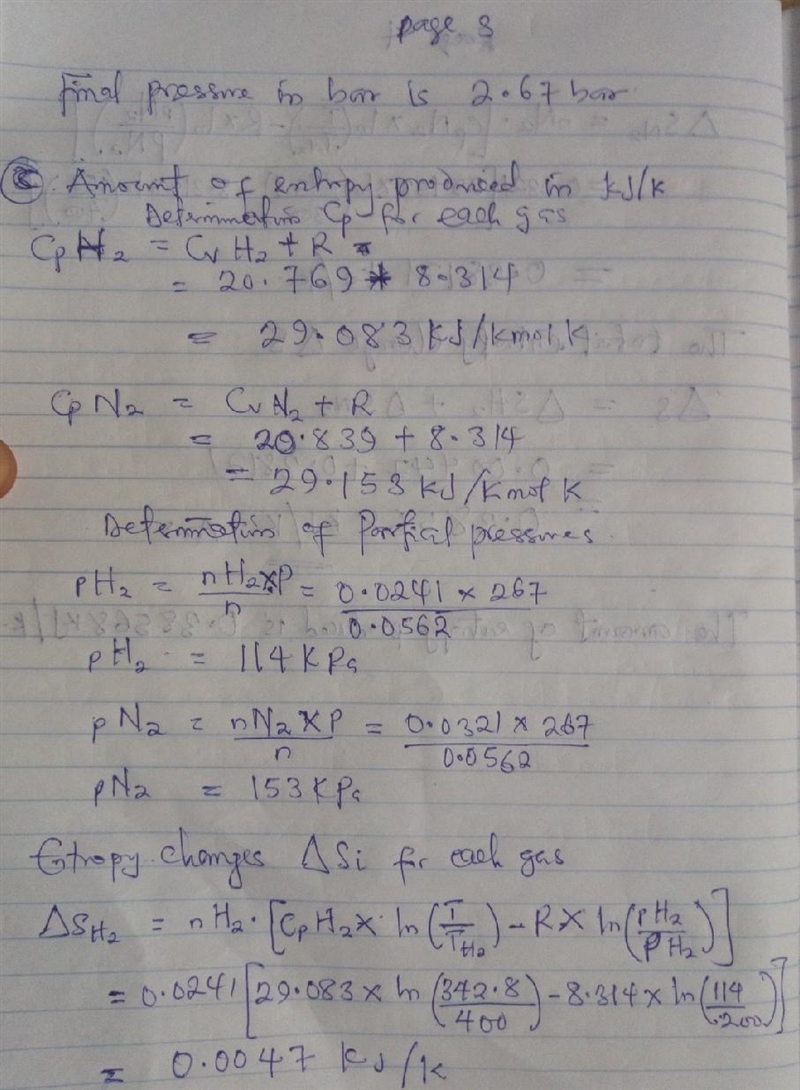 page 3
Final pressure in bar is 2.67 bar
C. Amount of entropy produced in kJ/k
Determination Cp for each gas
CpH2 = CvH2 + R
= 20.769 + 8.314
= 29.083 kJ/kmol.K
CpN2 = CvN2 + R
= 20.839 + 8.314
= 29.153 kJ/kmol K
Determination of Partial pressures
pH2 = nH2×P/n = 0.0241 × 267/0.0562
pH2 = 114 KPa
pN2 = nN2×P/n = 0.0321 × 267/0.0562
pN2 = 153 KPa
Entropy changes ΔSi for each gas
ΔSH2 = nH2·[CpH2× ln(T/TH2) - R× ln(pH2/PH2)]
= 0.0241[29.083 × ln(342.8/400) - 8.314 × ln(114/200)]
= 0.0047 kJ/k